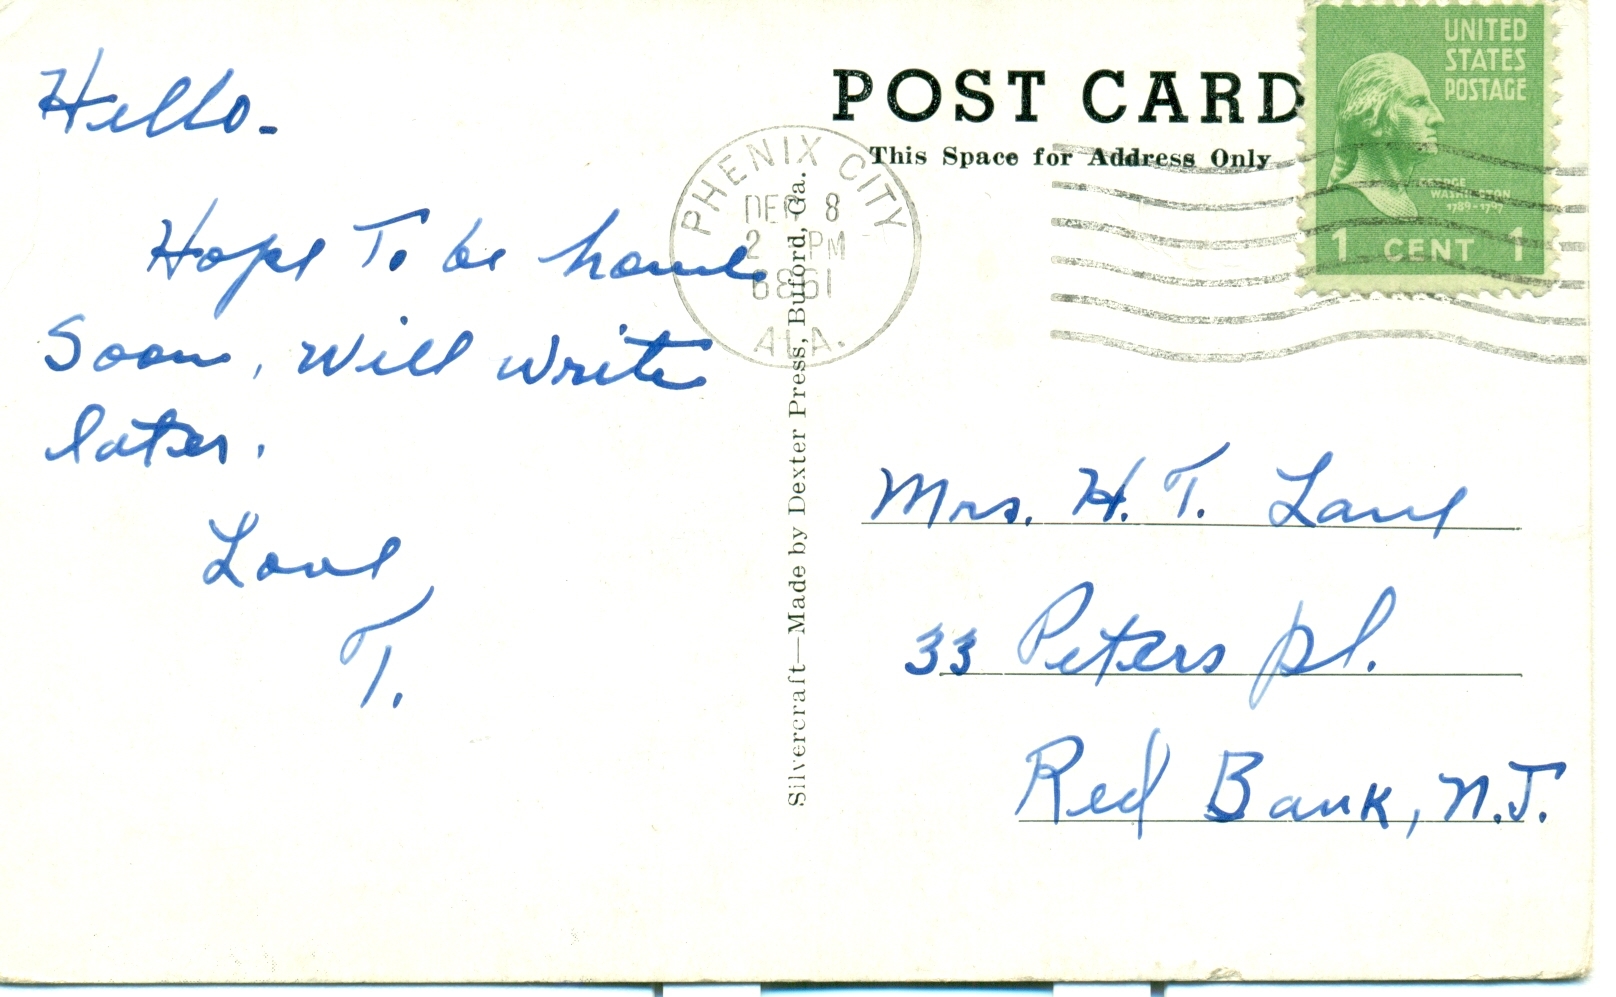 Hello.
Hope To be home
Soon, will write
later.
Love,
T.
POST CARD
This Space for Address Only
UNITED
STATES
POSTAGE
GEORGE
WASHINGTON
1789-1797
1 CENT 1
PHENIX CITY
DEC 8
2 PM
ALA.
Silvercraft—Made by Dexter Press, Buford, Ga.
Mrs. H. T. Lane
33 Peters pl.
Red Bank, N.J.